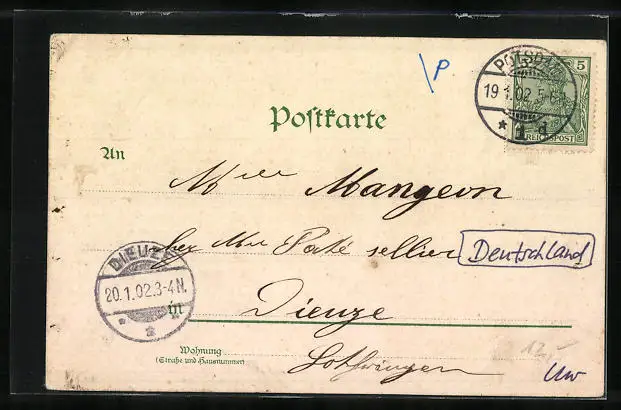 P
POTSDAM
19.1.02.5-6N.
* 1 d.
5
REICHSPOST
Postkarte
An
Mlle Mangeon
chez Mr Porté sellier
Deutschland
DIEUZE
20.1.02.3-4N.
in Dieuze
Wohnung
(Straße und Hausnummer)
Lothringen
12,-